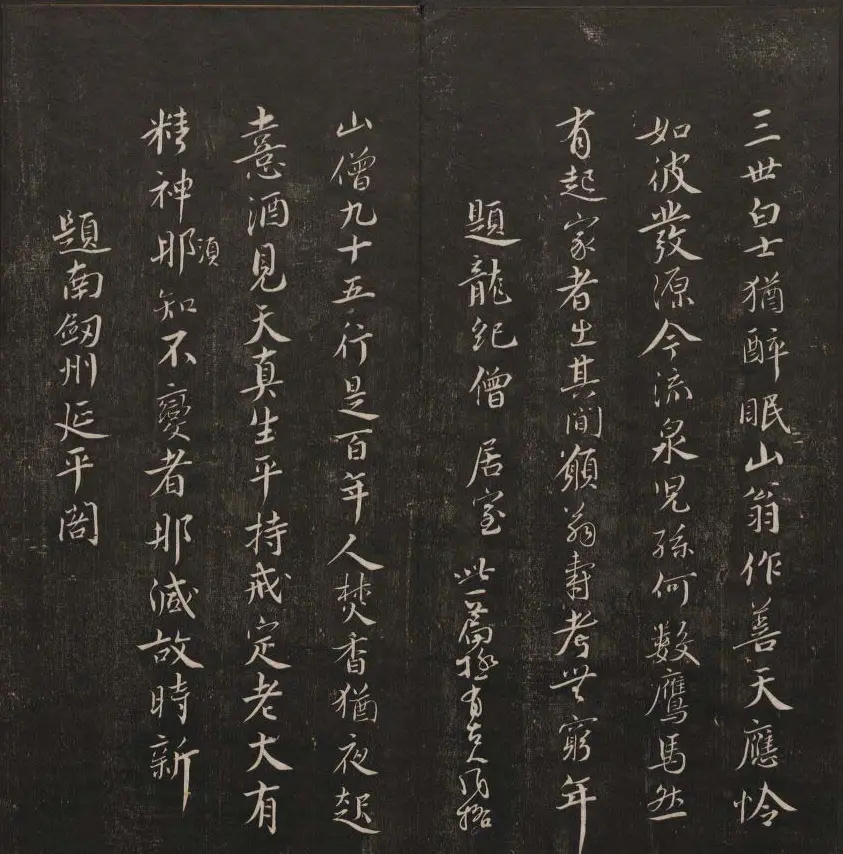 三世白士猶醉眠山翁作善天應憐
如彼發源今流泉兒孫何數鷹馬然
有起家者出其間願翁壽考無窮年
題龍紀僧居室 此一篇極有古人風格
山僧九十五行是百年人焚香猶夜起
憙酒見天真生平持戒定老大有
精神那須知不變者那減故時新
題南劔州延平閣